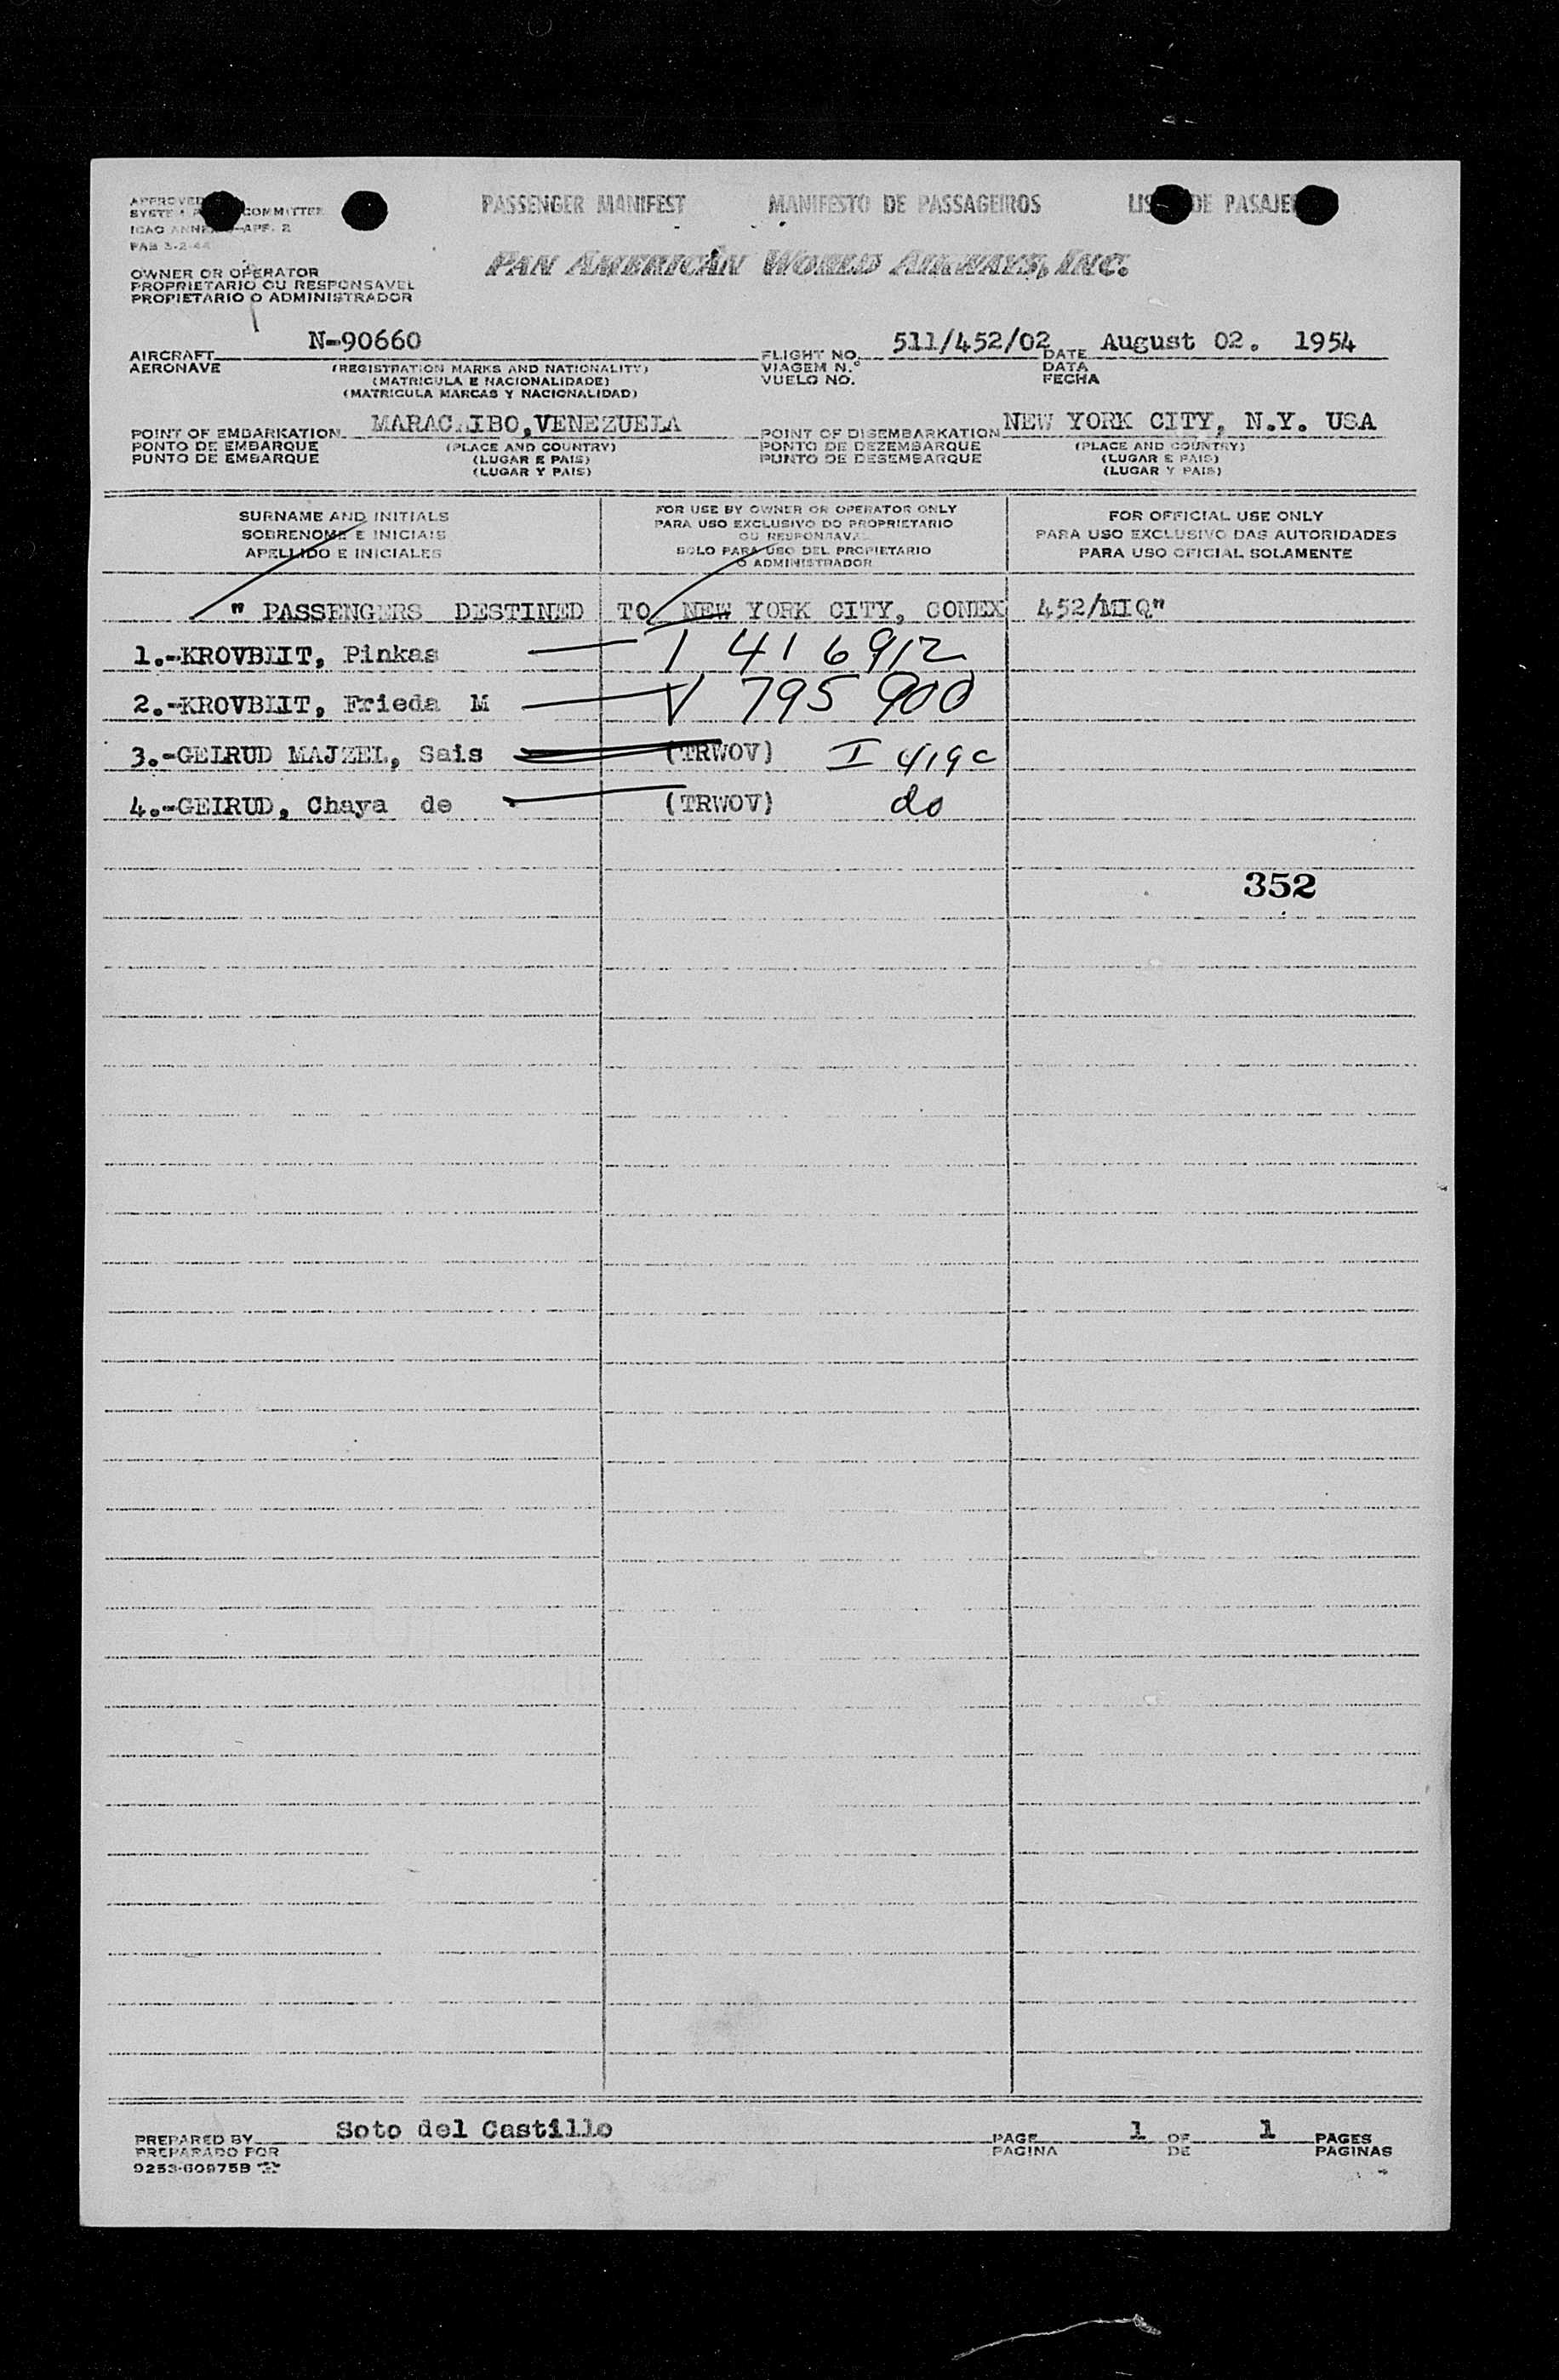 PASSENGER MANIFEST MANIFESTO DE PASSAGEIROS DE
APPROVED
COMMITTEE
ICAO APP. 2
PAB 3-2-44
PAN AMERICAN WORLD AIRWAYS, INC.
OWNER OR OPERATOR
PROPRIETARIO OU RESPONSAVEL
PROPIETARIO O ADMINISTRADOR
AIRCRAFT N-90660 FLIGHT NO. 511/452/02 DATE August 02. 1954
AERONAVE (REGISTRATION MARKS AND NATIONALITY) VIAGEM N.° DATA
(MATRICULA E NACIONALIDADE) VUELO NO. FECHA
(MATRICULA MARCAS Y NACIONALIDAD)
POINT OF EMBARKATION MARACAIBO,VENEZUELA POINT OF DISEMBARKATION NEW YORK CITY, N.Y. USA
PONTO DE EMBARQUE (PLACE AND COUNTRY) PONTO DE DEZEMBARQUE (PLACE AND COUNTRY)
PUNTO DE EMBARQUE (LUGAR E PAIS) PUNTO DE DESEMBARQUE (LUGAR E PAIS)
(LUGAR Y PAIS) (LUGAR Y PAIS)
SURNAME AND INITIALS
SOBRENOME E INICIAIS
APELLIDO E INICIALES
FOR USE BY OWNER OR OPERATOR ONLY
PARA USO EXCLUSIVO DO PROPRIETARIO
OU RESPONSAVEL
SOLO PARA USO DEL PROPIETARIO
O ADMINISTRADOR
FOR OFFICIAL USE ONLY
PARA USO EXCLUSIVO DAS AUTORIDADES
PARA USO OFICIAL SOLAMENTE
" PASSENGERS DESTINED TO NEW YORK CITY, CONEX 452/MIQ"
1.-KROVBLIT, Pinkas 1 416912
2.-KROVBLIT, Frieda M V 795 900
3.-GELRUD MAJZEL, Sais (TRWOV) I 419c
4.-GEIRUD, Chaya de (TRWOV) do
352
PREPARED BY Soto del Castillo PAGE 1 OF 1 PAGES
PREPARADO POR PAGINA DE PAGINAS
9253-60975B